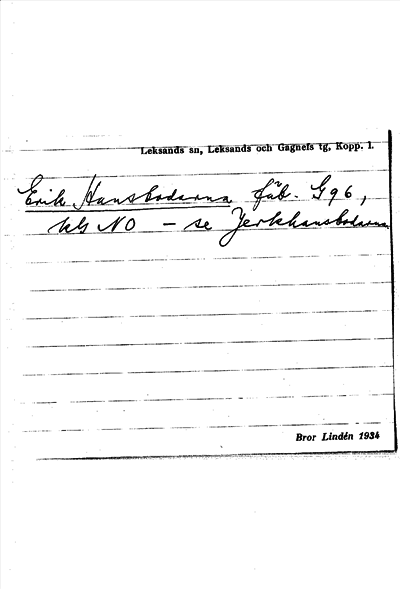 Leksands sn, Leksands och Gagnefs tg, Kopp. l.
Erik Hansbodarna fäb. G96,
kls NO – se Jerkhansbodarna
Bror Lindén 1934